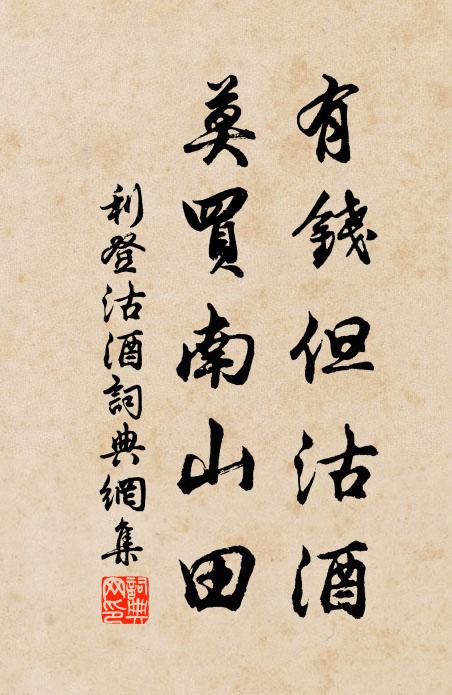 有錢但沽酒
莫買南山田
利登沽酒詞典網集
詞典網印